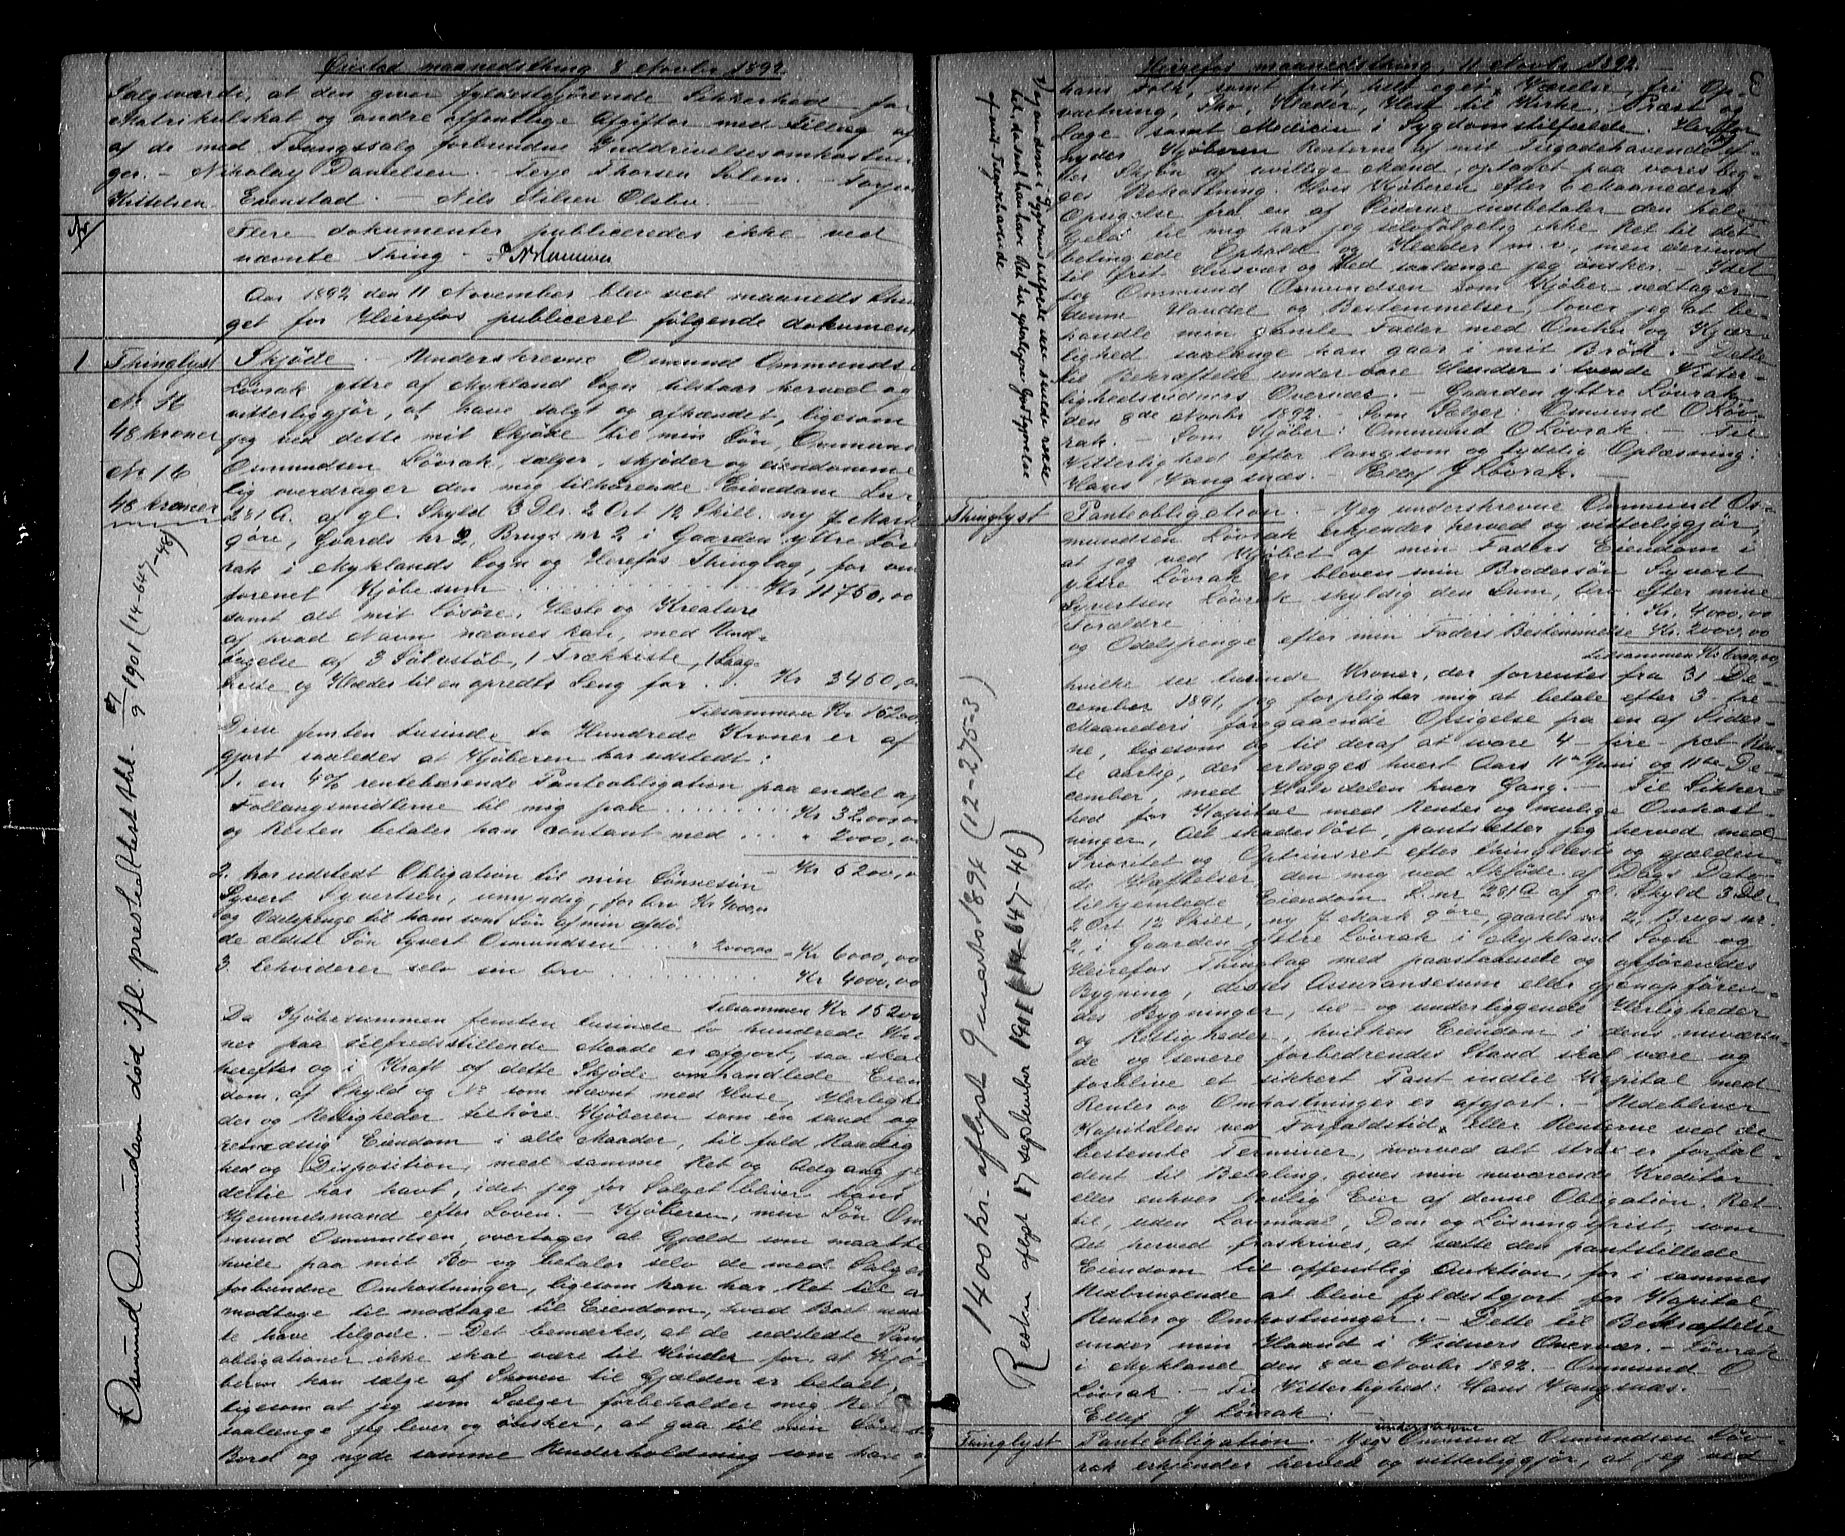 Øiestad maanedsthing 8 Novbr 1892
Salgsværdi, at den giver fyldestgjørende Sikkerhed for
Matrikulskat og andre offentlige Afgifter med Tillæg af
af de med Tvangssalg forbundne Inddrivelsesomkostnin
ger. - Nikolay Danielsen. - Terje Thorsen Selem. - Torjus
Kittelsen Evenstad. - Nils Nilsen Olsbu. -
Flere dokumenter publiceredes ikke ved
nævnte Thing -
Aar 1892 den 11 November blev ved maanedsthin
get for Heirefos publiceret følgende dokumen
1 Thinglyst Skjøde. Underskrevne Osmund Ommunds
Løvrak yttre af Mykland Sogn tilstaar herved og
vitterliggjør, at have solgt og afhændet, ligesom
jeg ved dette mit Skjøde til min Søn, Ommund
Osmundsen Løvrak, sælger, skjøder og eiendomme
lig overdrager den mig tilhørende Eiendom Lnr
281 A. af gl. Skyld 3 Dlr. 2 Ort 12 Skill. ny 7 Mark
gøre, Gaards nr 2, Brugs nr 2 i Gaarden yttre Løv
rak i Myklands Sogn og Herefos Thinglag, for om
forenet Kjøbesum Kr 11750,00
samt alt mit Løsøre, Heste og Kreature
af hvad Navn nævnes kan, med Und-
tagelse af 3 Sølvstøb, 1 Trækkiste, 1 Laag-
kiste og Klæder til en opredt Seng for . Kr 3450,00
Tilsammen Kr 15200
Disse femten tusinde to Hundrede Kroner er af
gjort saaledes at Kjøberen har udstedt:
1. en 4% rentebærende Panteobligation paa endel af
Follaugsmidlerne til mig pak Kr 3200,00
og Resten betaler han contant med " 2000,00
- Kr 5200,00
2. har udstedt Obligation til min Sønnesøn
Syvert Syvertsen, umyndig, for Arv Kr 4000,00
og Odelspenge til ham som Søn af min afdø-
de ældste Søn Syvert Osmundsen " 2000,00 = Kr 6000,00
3. Lekviderer selv sin Arv Kr 4000,00
Tilsammen Kr 15200
Da Kjøbesummen femten tusinde to hundrede Kro
ner paa tilfredsstillende Maade er afgjort, saa skal
herefter og i Kraft af dette Skjøde omhandlede Eien
dom, af Skyld og No som nævnt med Huse, Herlighe
der og Rettigheder tilhøre Kjøberen som en sand og
retmæssig Eiendom i alle Maader, til fuld Raadig
hed og Disposition, med samme Ret og Adgang je
dertil har havt, idet jeg for Salget bliver hans
Hjemmelsmand efter Loven. - Kjøberen, min Søn Om
mund Osmundsen, overtager al Gjæld som maatte
hvile paa mit Bo og betaler selv de med Salget
forbundne Omkostninger, ligesom han har Ret til at
modtage til modtage til Eiendom, hvad Boet maat
te have tilgode. - Det bemærkes, at de udstedte Pant
obligationer ikke skal være til Hinder for at Kjø-
beren kan sælge af Skoven til Gjælden er betalt,
ligesom at jeg som Sælger forbeholder mig Ret
saalænge jeg lever og ønsker, at gaa til min Søns
Bord og nyde samme Underholdning som han og
No 16
48 kroner
No 16
48 kroner
Osmund Osmundsen død ifl. presteattest ahl. 9/9 1901 (14-647-48)
Heirefos maanedsthing, 11 Novbr 1892.
3
hans Folk, samt frit, helt eget, Værelse, fri Op-
vartning, Sko, Klæder, Hest til Kirke, Præst og
Læge samt Medicin i Sygdomstilfælde. Herfor
nyder Kjøberen Renterne af mit Tilgodehavende ef-
ter Skjøn af uvillige Mænd, optaget paa vores beg-
ges Bekostning. Hvis Kjøberen efter 6 Maaneders
Opsigelse fra en af Siderne indbetaler den hele
Gjæld til mig har jeg selvfølgelig ikke Ret til det
betingede Ophold og Klæder m. v., men derimod
til frit Husvær og Ved saalænge jeg ønsker. - Idet
jeg Ommund Osmundsen som Kjøber vedtager
denne Handel og Bestemmelser, lover jeg at be-
handle min gamle Fader med Omhu og Kjær-
lighed saalænge han gaar i mit Brød. - Dette
til Bekræftelse under vore Hænder i tvende Vitter-
lighedsvidners Overvær. - Gaarden yttre Løvrak
den 8de Novbr 1892. - Som Sælger: Osmund O Løv-
rak. - Som Kjøber: Ommund O Løvrak. - Til
Vitterlighed efter langsom og tydelig Oplæsning:
Hans Vangsnæs. - Ellef J Løvrak. -
Thinglyst Panteobligation. - Jeg underskrevne Ommund Os-
mundsen Løvrak erkjender herved og vitterliggjør,
at jeg ved Kjøbet af min Faders Eiendom i
yttre Løvrak er bleven min Brodersøn Syvert
Syvertsen Løvrak skyldig den Sum, Arv efter mine
Forældre Kr. 4000,00
og Odelspenge efter min Faders Bestemmelse Kr. 2000,00
tilsammen Kr 6000,00
hvilke sex tusinde Kroner, der forrentes fra 31 De-
cember 1891, jeg forpligter mig at betale efter 3- tre-
Maaneders foregaaende Opsigelse fra en af Sider-
ne, ligesom og til deraf at svare 4 - fire - pct Ren-
te aarlig, der erlægges hvert Aars 11te Juni og 11te De-
cember, med Halvdelen hver Gang. - Til Sikker-
hed for Kapital med Renter og mulige Omkost-
ninger, Alt skadesløst, pantsætter jeg herved med
Prioritet og Optrinsret efter thinglæste og gjælden-
de Hæftelser, den mig ved Skjøde af Dags Dato
tilhjemlede Eiendom L. nr 281A af gl. Skyld 3 Dlr
2 Ort 12 Skill, ny 7 Mark gøre, gaards nr 2, Brugs nr.
2, i Gaarden yttre Løvrak i Mykland Sogn og
Heirefos Thinglag med paastaaende og opførendes
Bygning, disses Assuransesum eller gjenopføren-
des Bygninger, til- og underliggende Herligheder
og Rettigheder, hvilken Eiendom i dens nuværen-
de og senere forbedrendes Stand skal være og
forblive et sikkert Pant indtil Kapital med
Renter og Omkostninger er afgjort. - Udebliver
Kapitalen ved Forfaldstid, eller Renterne ved de
bestemte Terminer, hvorved alt strax er forfal-
dent til Betaling, gives min nuværende Kreditor
eller enhver lovlig Eier af denne Obligation, Ret
til, uden Lovmaal, Dom og Løsningsfrist, som
det herved fraskrives, at sætte den pantstillede
Eiendom til offentlig Auktion, for i sammes
Udbringende at blive fyldestgjort for Kapital,
Renter og Omkostninger. - Dette til Bekræftelse
under min Haand i Vidners Overvær. - Løvrak
i Mykland den 8de Novbr 1892. - Ommund O
Løvrak. - Til Vitterlighed: Hans Vangsnæs. -
Ellef J Løvrak.
Thinglyst Panteobligation. - Jeg underskrevne Ommund Osmundsen Løv-
rak erkjender herved og vitterliggjør, at jeg ved
1400 kr. aflyst 9 marts 1894 (12-275-3)
Resten aflyst 17 september 1901 (14-647-46)